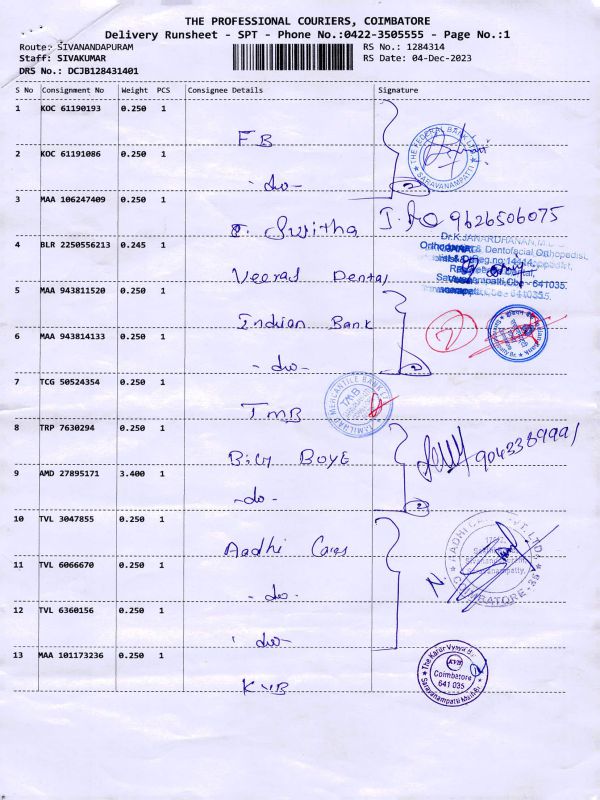 THE PROFESSIONAL COURIERS, COIMBATORE
Delivery Runsheet - SPT - Phone No.:0422-3505555 - Page No.:1
Route: SIVANANDAPURAM RS No.: 1284314
Staff: SIVAKUMAR RS Date: 04-Dec-2023
DRS No.: DCJB128431401
S No Consignment No Weight PCS Consignee Details Signature
1 KOC 61190193 0.250 1
FB
THE FEDERAL BANK LTD. SARAVANAMPATTI
2 KOC 61191086 0.250 1
-do- 2
3 MAA 106247409 0.250 1
Sujitha 9626506075
4 BLR 2250556213 0.245 1
Veeras Dental
Dr.K.JANARDHANAN, M.D.S
Orthodontic & Dentofacial Orthopedist,
5 MAA 943811520 0.250 1
Indian Bank
6 MAA 943814133 0.250 1
-do- 2
7 TCG 50524354 0.250 1
TMB
TAMILNAD MERCANTILE BANK LTD
TMB
8 TRP 7630294 0.250 1
BILY BOYE 9043389991
9 AMD 27895171 3.400 1
-do- 2
10 TVL 3047855 0.250 1
Aadhi Cars
COIMBATORE-35
11 TVL 6066670 0.250 1
-do-
12 TVL 6360156 0.250 1
-do-
13 MAA 101173236 0.250 1
KVB
The Karur Vysya Bank
KVB
Coimbatore
641 035